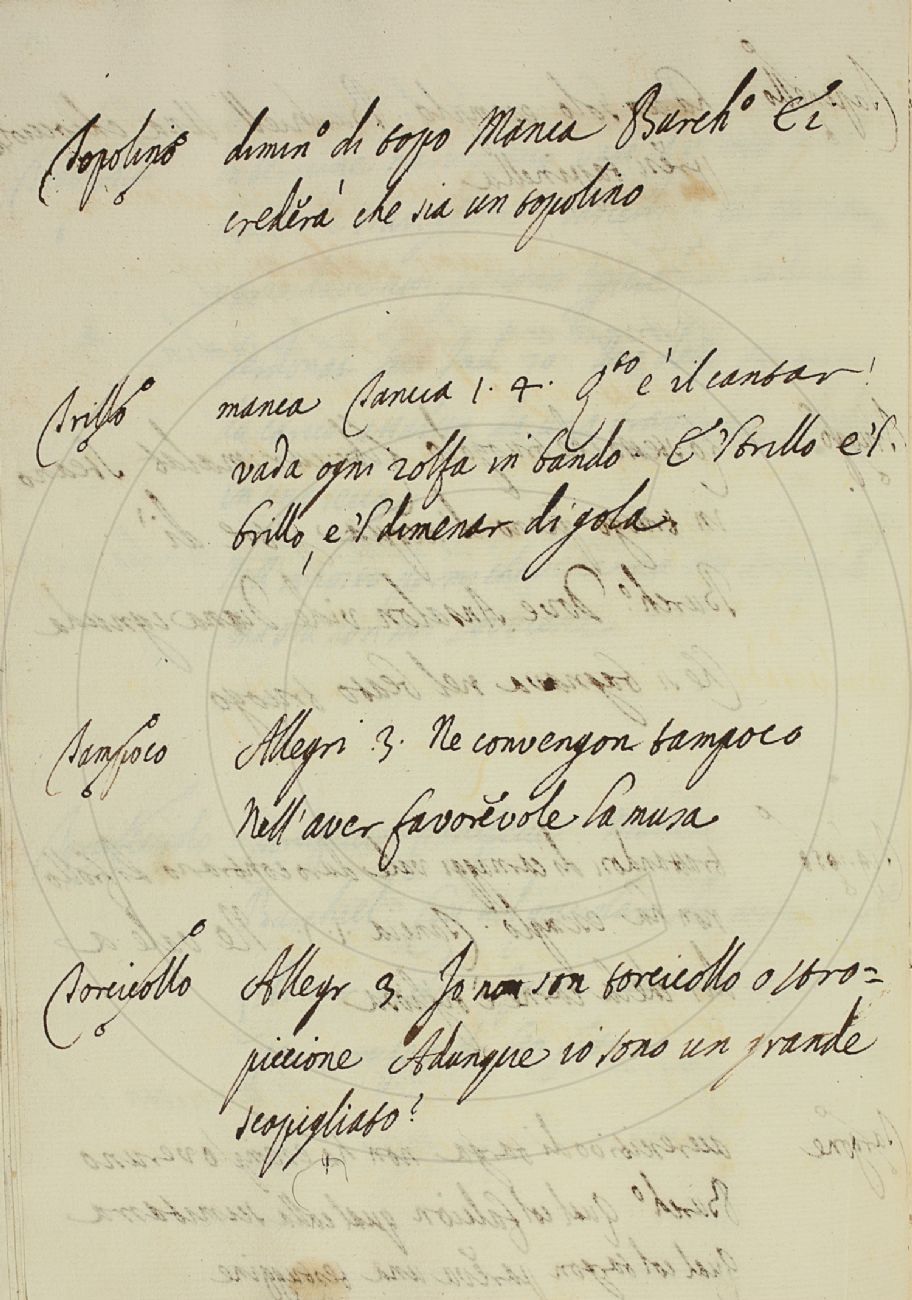 Topolino dimin.o di topo Manca Burch.o E i
crederrà che sia un topolino
Trillo manca Tancia 1. 4. Q.sto è il cantar!
vada ogni zolfa in bando. E 'l trillo e 'l
trillo, e 'l dimenar di gola
Tampoco Allegri 3. Ne convengon tampoco
Nell'aver favorevole la musa
Torcicollo Allegr 3. Io non son torcicollo o stro=
piccione Adunque io sono un grande
scopigliato?